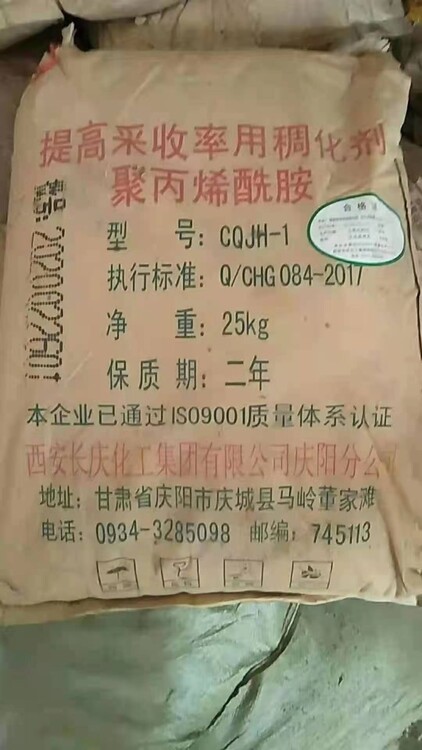 提高采收率用稠化剂
聚丙烯酰胺
型 号：CQJH-1
执行标准：Q/CHG 084-2017
净 重：25kg
保 质 期：二年
本企业已通过ISO9001质量体系认证
西安长庆化工集团有限公司庆阳分公司
地址：甘肃省庆阳市庆城县马岭董家滩
电话：0934-3285098 邮编：745113
合格